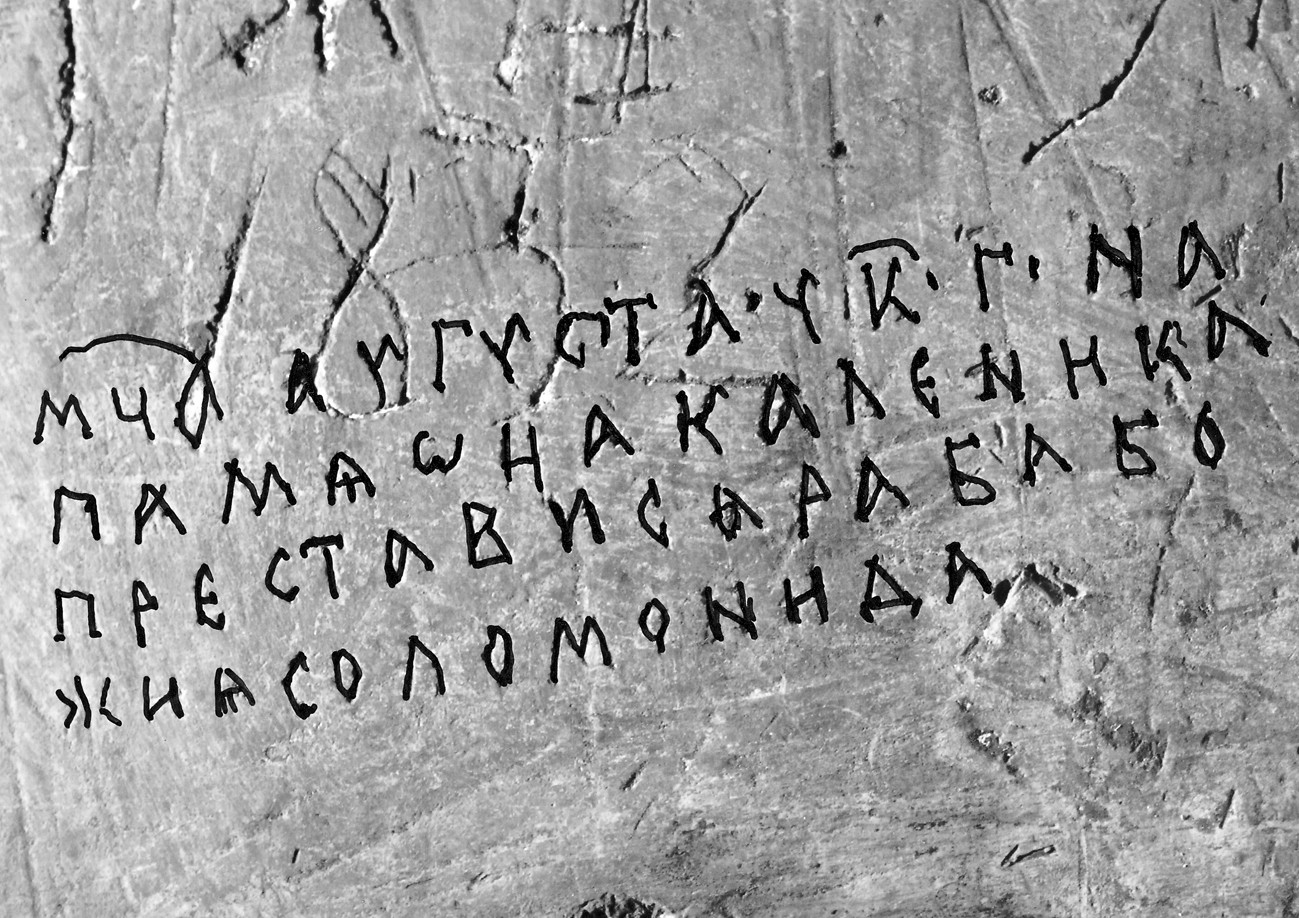 м҃ча аүгүста · ү к҃ · г · на
памѧ ѡна каленика
престависѧ раба бо
жиѧ соломонида